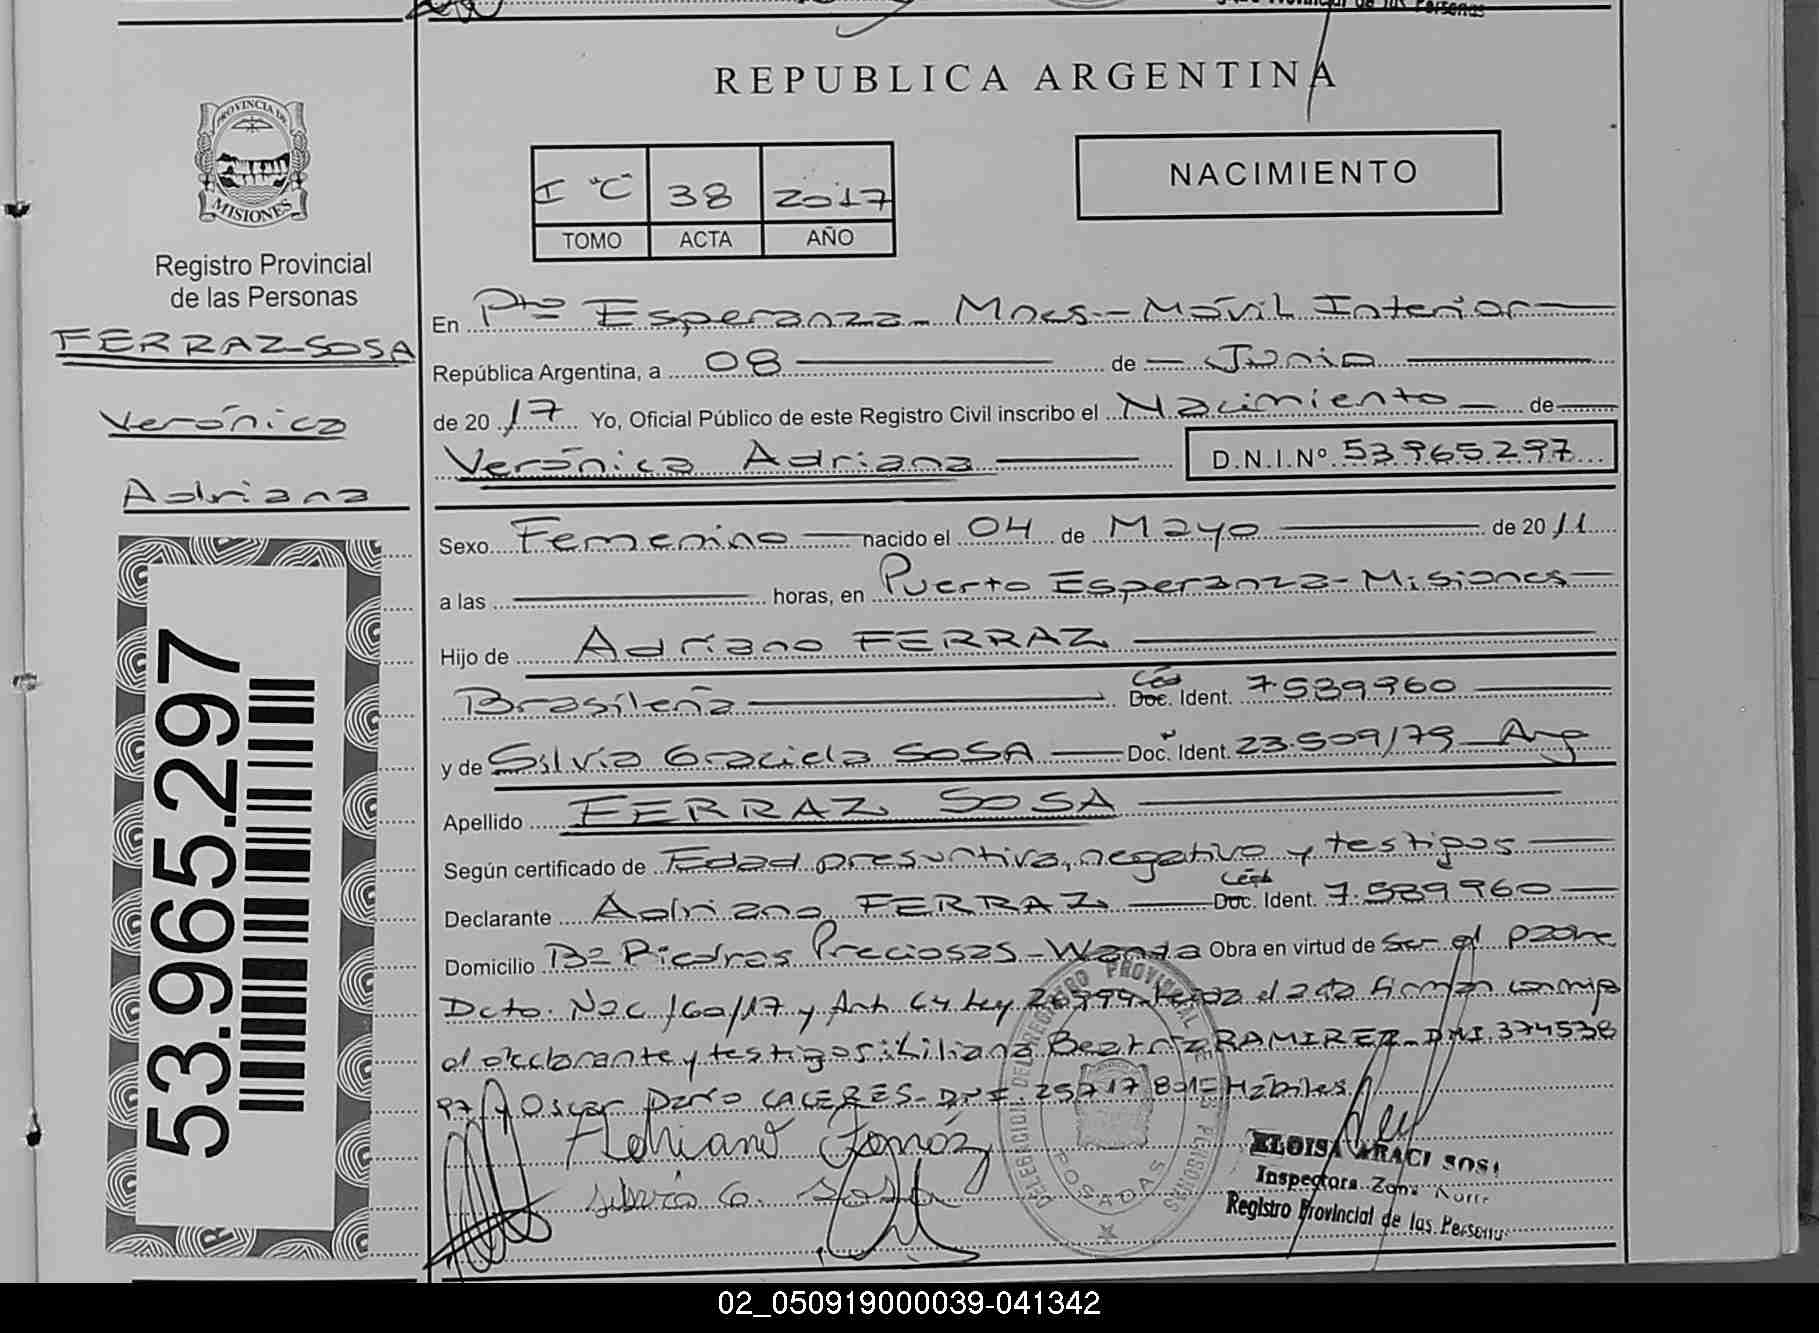 REPUBLICA ARGENTINA
PROVINCIA DE
MISIONES
Registro Provincial
de las Personas
FERRAZ SOSA
Verónica
Adriana
53.965.297
I "C" 38 2017
TOMO ACTA AÑO
NACIMIENTO
En Pto Esperanza - Mnes - Móvil Interior
República Argentina, a 08 de Junio
de 20 17 Yo, Oficial Público de este Registro Civil inscribo el Nacimiento de
Verónica Adriana D.N.I.Nº 53965297
Sexo Femenino nacido el 04 de Mayo de 20 11
a las horas, en Puerto Esperanza - Misiones
Hijo de Adriano FERRAZ
Brasileña Céd Doc. Ident. 7.539960
y de Silvia Graciela SOSA Doc. Ident. 23.509179 Arg
Apellido FERRAZ SOSA
Según certificado de Edad presuntiva, negativo y testigos
Declarante Adriano FERRAZ Céd Doc. Ident. 7.539960
Domicilio Bº Piedras Preciosas - Wanda Obra en virtud de ser el padre
Dcto. Nac /60/17 y Art. 64 Ley el acta firman conmigo
el declarante y testigos: Beatriz RAMIREZ - DNI. 374538
97 y Oscar Darío CACERES - DNI. Hábiles
Silvia G. Sosa
POSADAS
ELOISA ARACI SOSA
Inspectora Zona Norte
Registro Provincial de las Personas
02_050919000039-041342